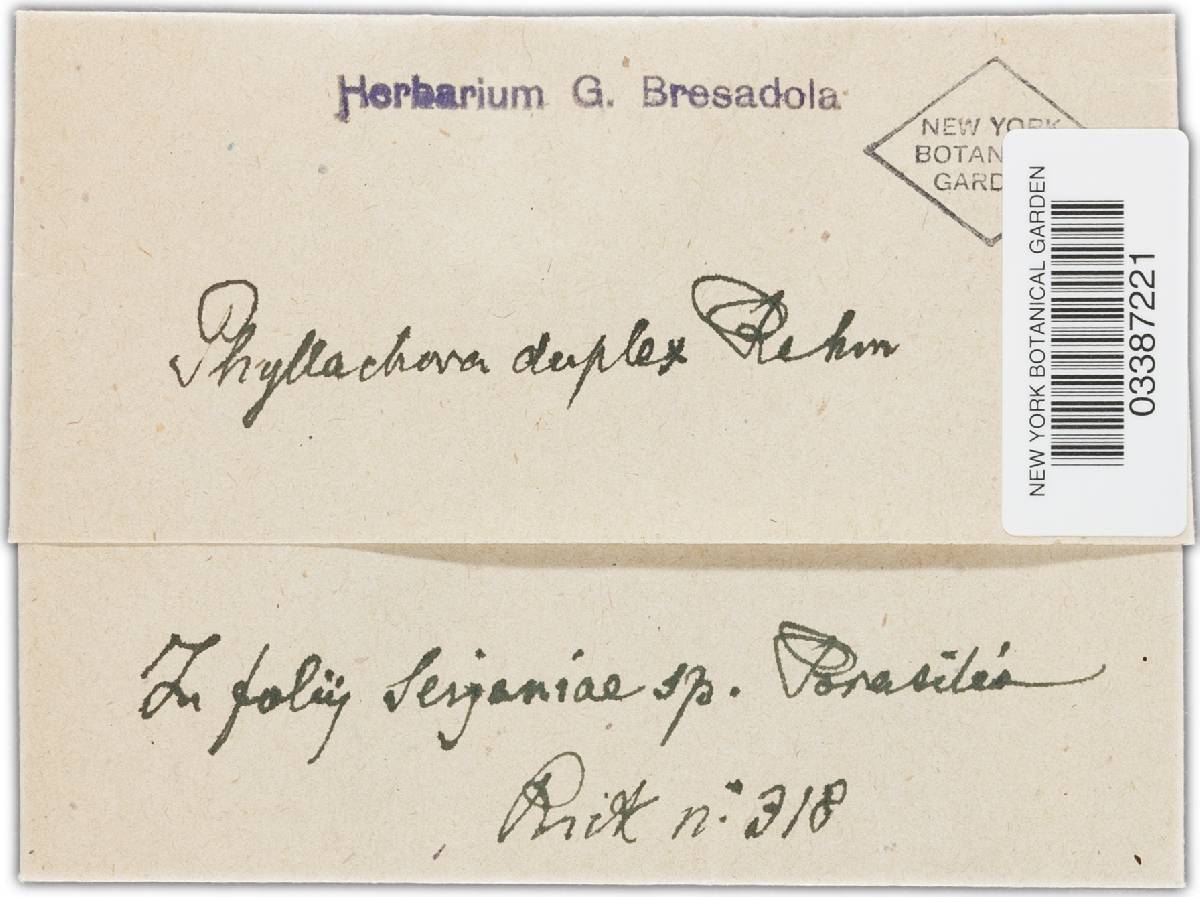 Herbarium G. Bresadola
NEW YORK
BOTAN
GARD
NEW YORK BOTANICAL GARDEN
03387221
Phyllachora duplex Rehm
In foliis Serjaniae sp.
Rick n.° 318